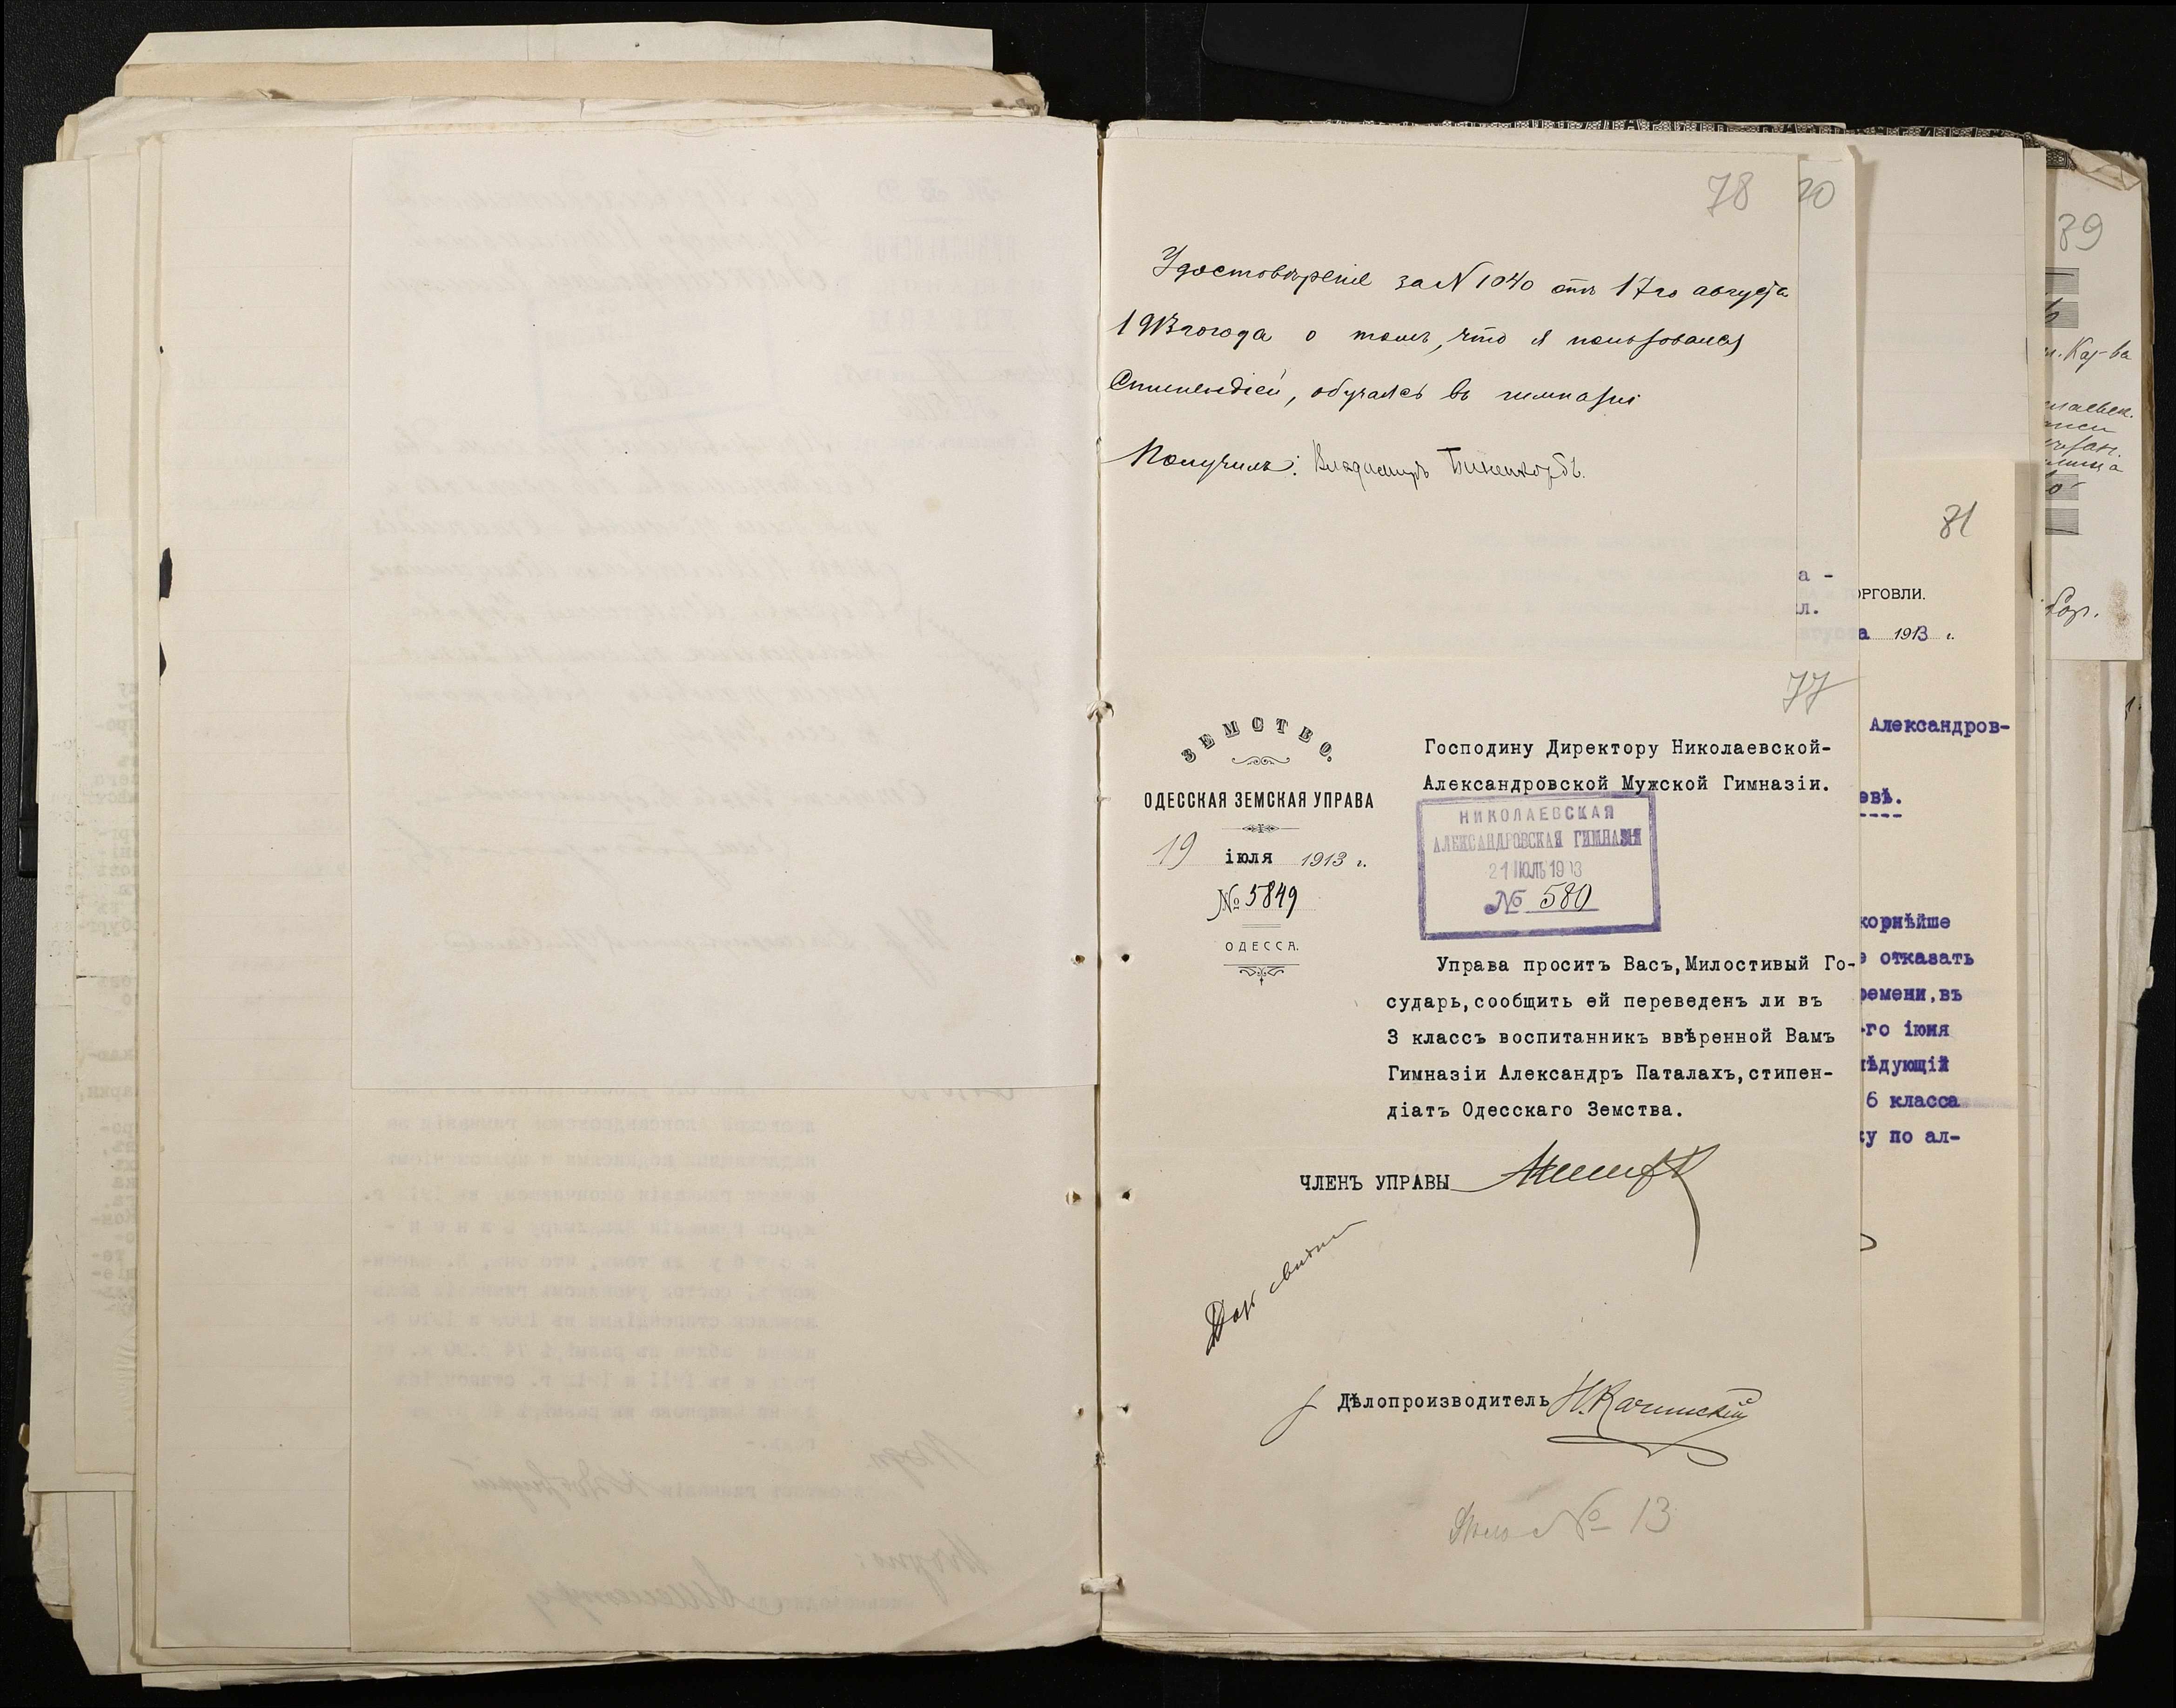 78
Удостовѣреніе за N 1040 отъ 17го августа
1913 года о томъ, что я пользовался
Стипендіей, обучаясь въ гимназіи
Получилъ: Владимиръ
77
ЗЕМСТВО.
ОДЕССКАЯ ЗЕМСКАЯ УПРАВА
19 іюля 1913 г.
№ 5849
ОДЕССА.
Господину Директору Николаевской-
Александровской Мужской Гимназіи.
НИКОЛАЕВСКАЯ
АЛЕКСАНДРОВСКАЯ ГИМНАЗІЯ
21 ІЮЛЬ 1913
№ 580
Управа проситъ Васъ, Милостивый Го-
сударь, сообщить ей переведенъ ли въ
3 классъ воспитанникъ ввѣренной Вамъ
Гимназіи Александръ Паталахъ, стипен-
діатъ Одесскаго Земства.
ЧЛЕНЪ УПРАВЫ
Дѣлопроизводитель Н. Качинскій
Дѣло № 13
20
а -
л.
81
ОРГОВЛИ.
а 1913 г.
Александров-
евѣ.
корнѣйше
отказать
ремени, въ
-го іюня
лѣдующій
6 класса
ку по ал-
89